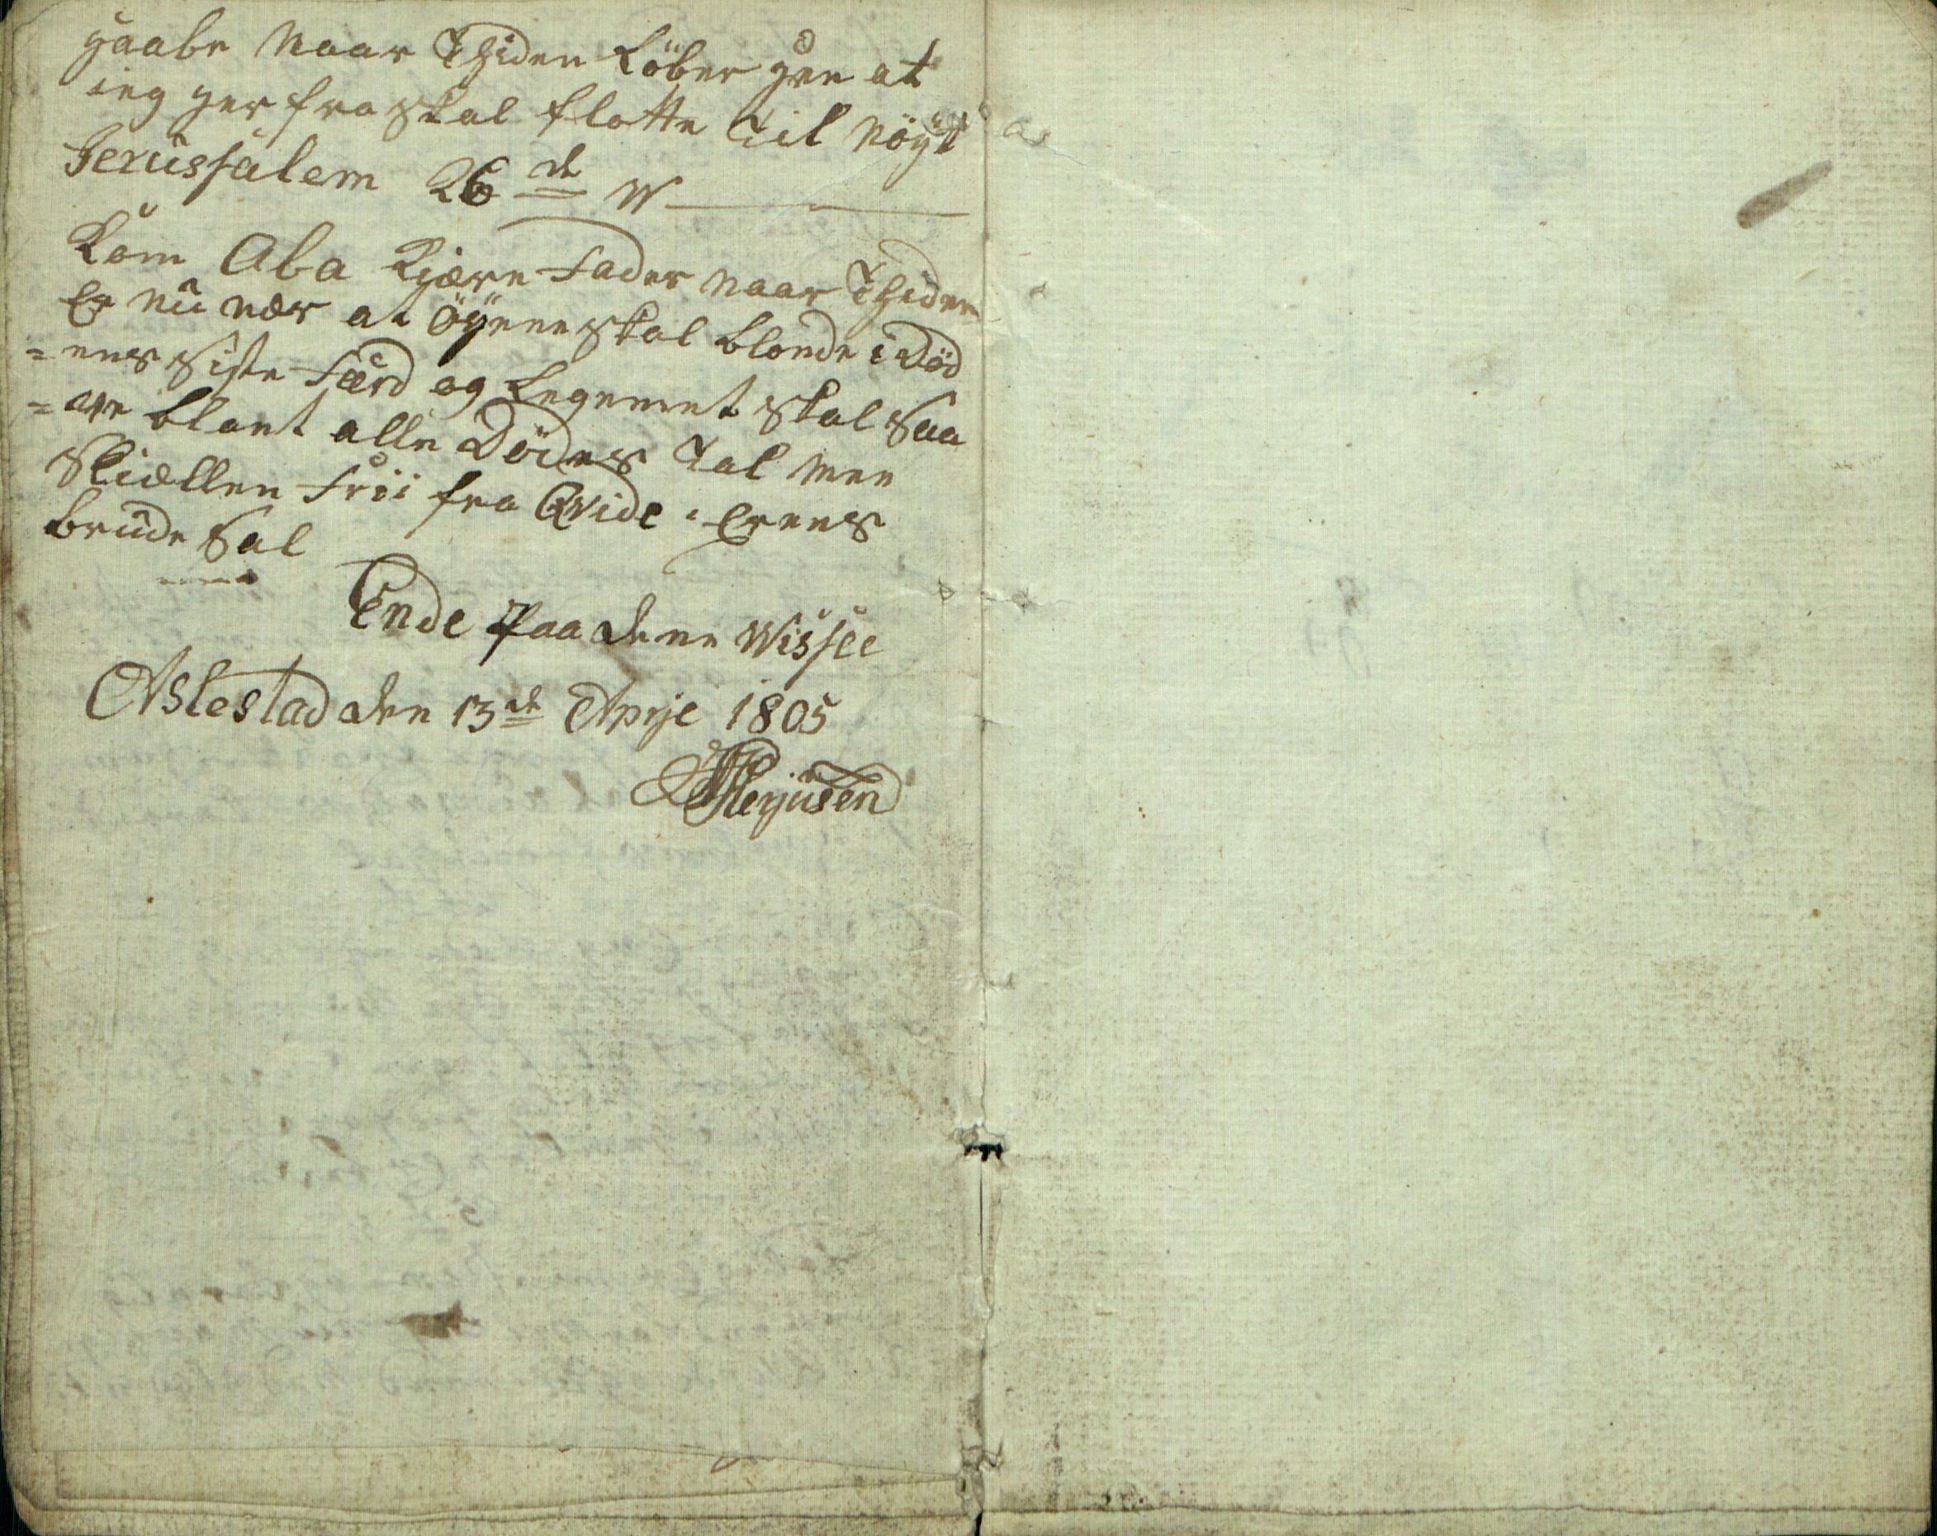 haabe naar Thiden Löber hen at
ieg her fra skal flotte til nöyt
Jerussalem 26de W
Kom Aba Kiære Fader naar Thiden
Er nu nær at Öyene skal blonde i Död
=ens siste Færd og Legemet skal Saa
=are blant alle Dödes Tal men
Skiællen Frii fra Qvide i Erens
brude Sal
Ende Paa Dene Wissee
Aslestad den 13de Aprje 1805
Herjusen